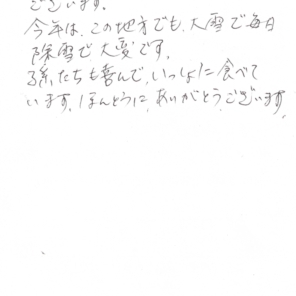 ございます。
今年は、この地方でも、大雪で毎日
除雪で大変です。
孫たちも喜んで、いっしょに食べて
います。ほんとうに、ありがとうございます。